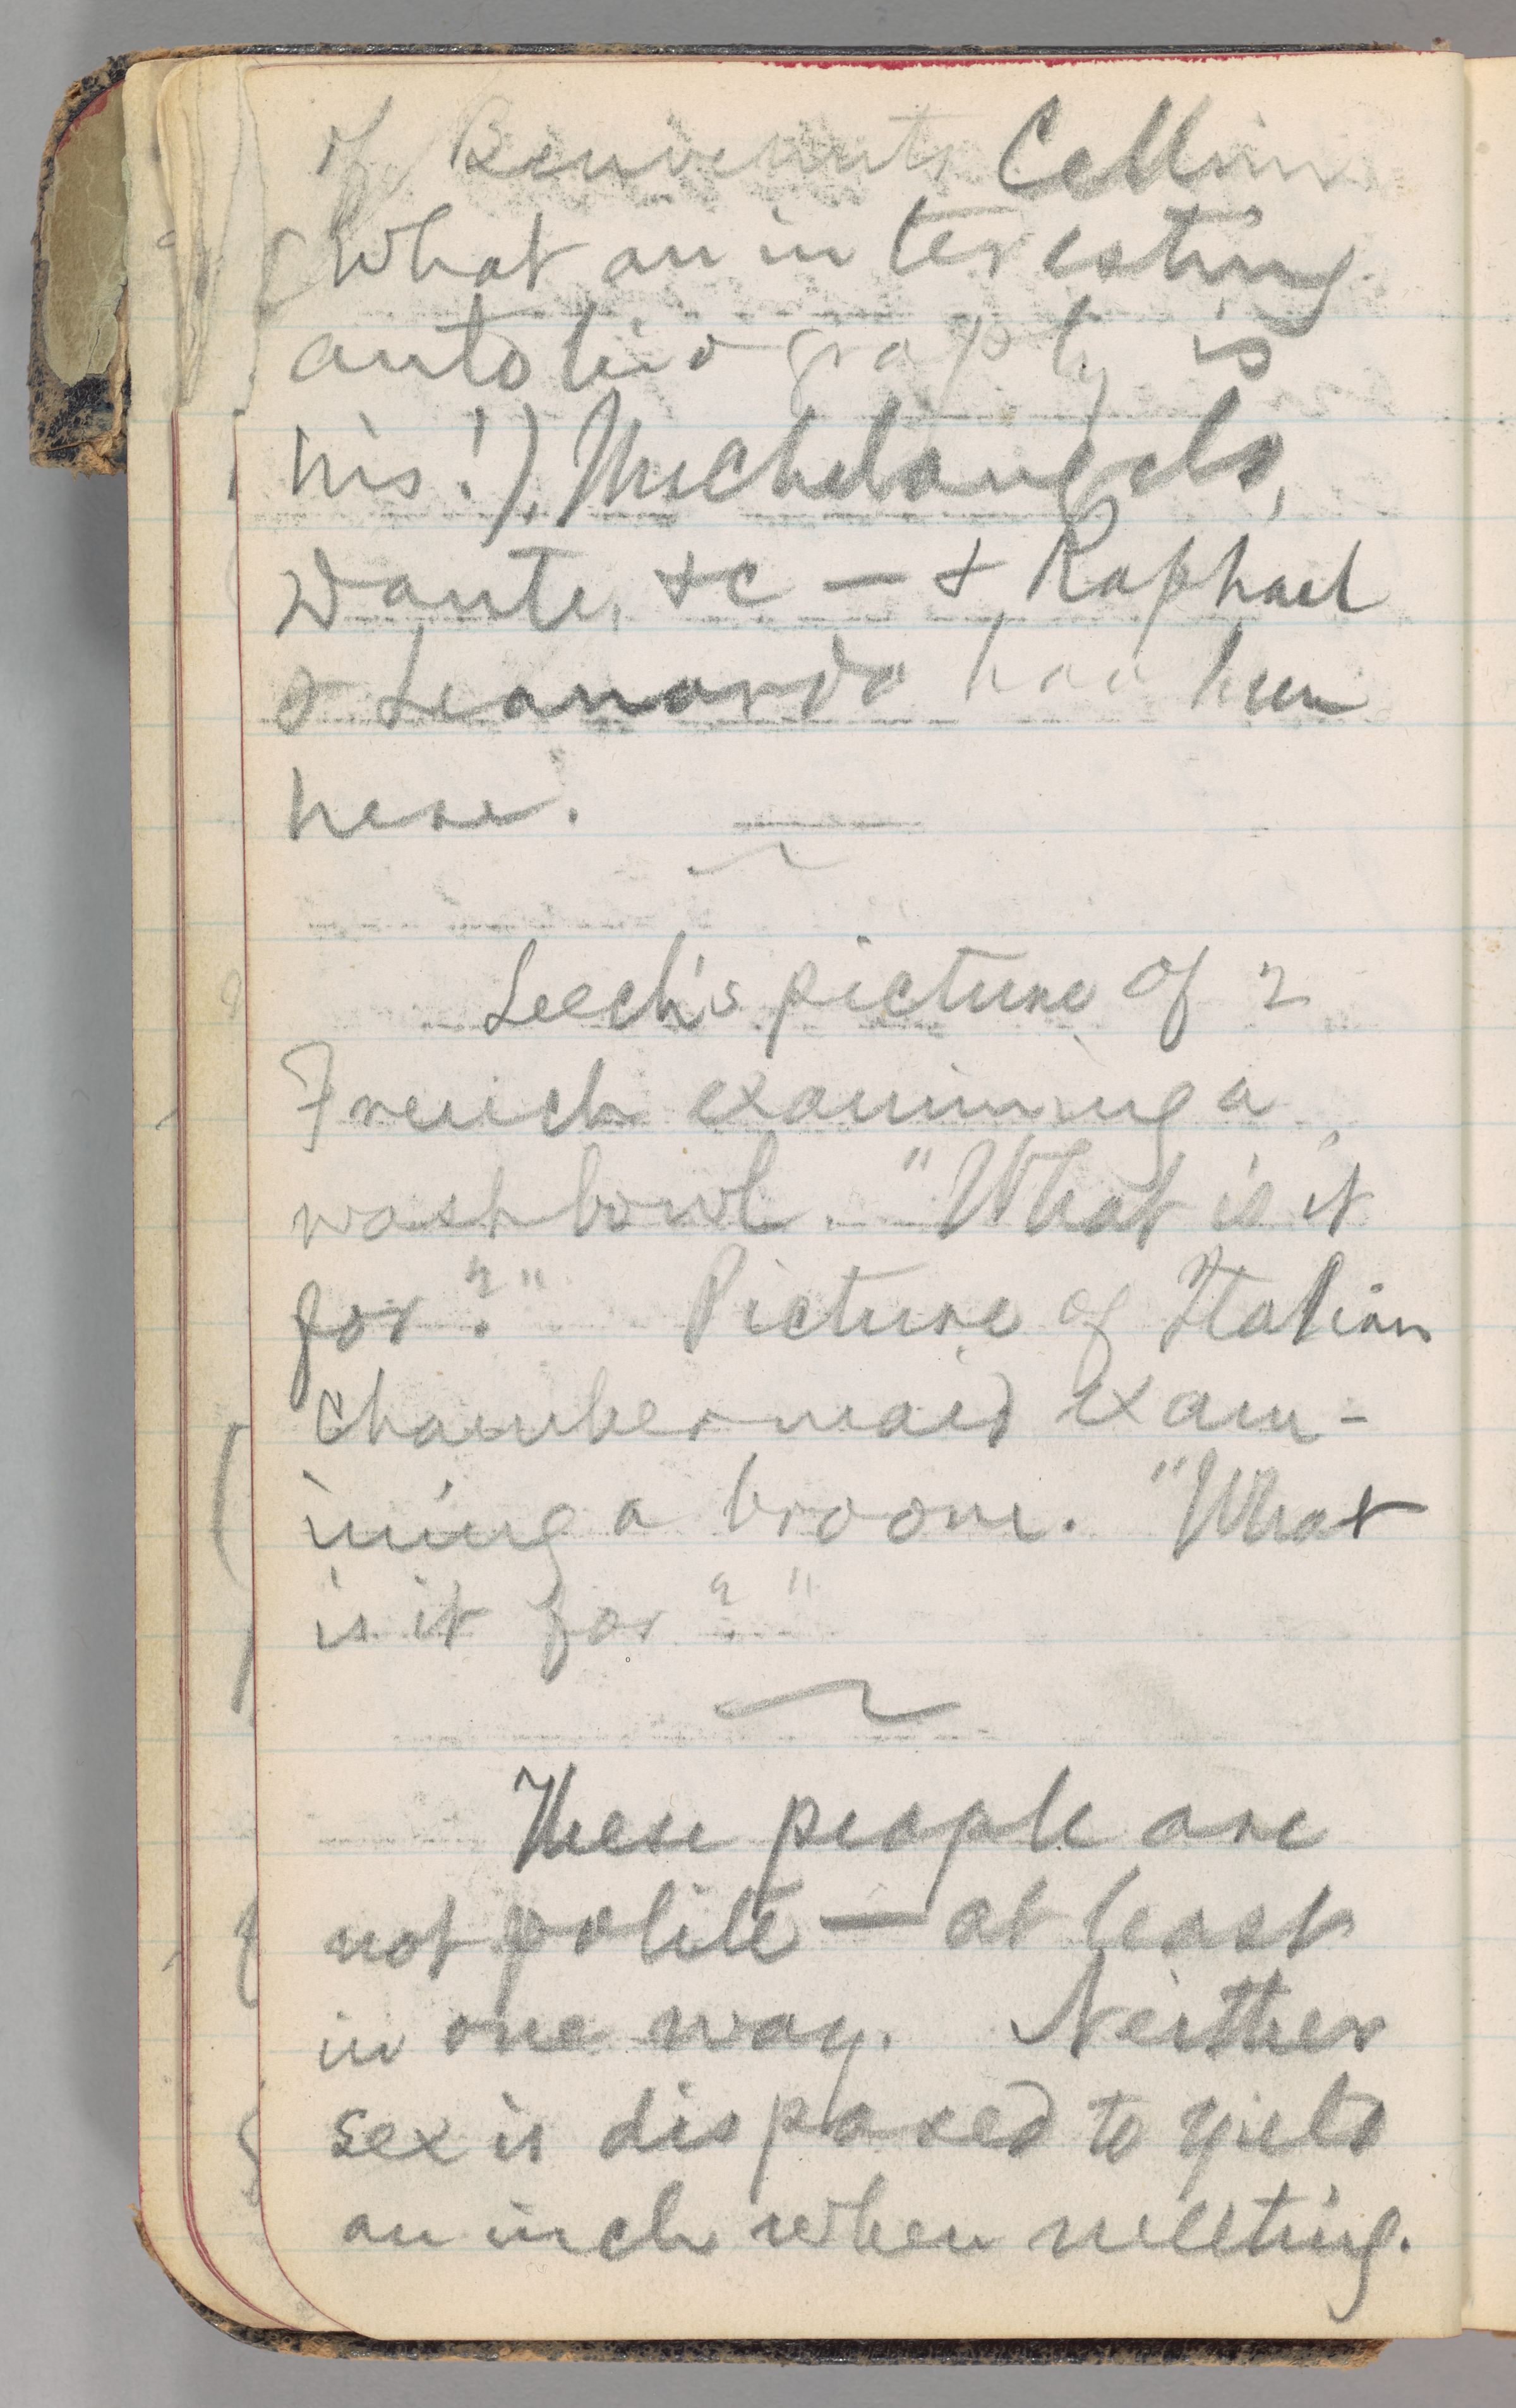 of Benvenuto Cellini
(What an interesting
autobiography is
his!), Michelangelo,
Dante, &c — & Raphael
& Leonardo had been
here.
Leech's picture of 2
French examining a
washbowl. "What is it
for?" Picture of Italian
chambermaid exam-
ining a broom. "What
is it for?"
These people are
not polite — at least
in one way. Neither
sex is disposed to yield
an inch when meeting.